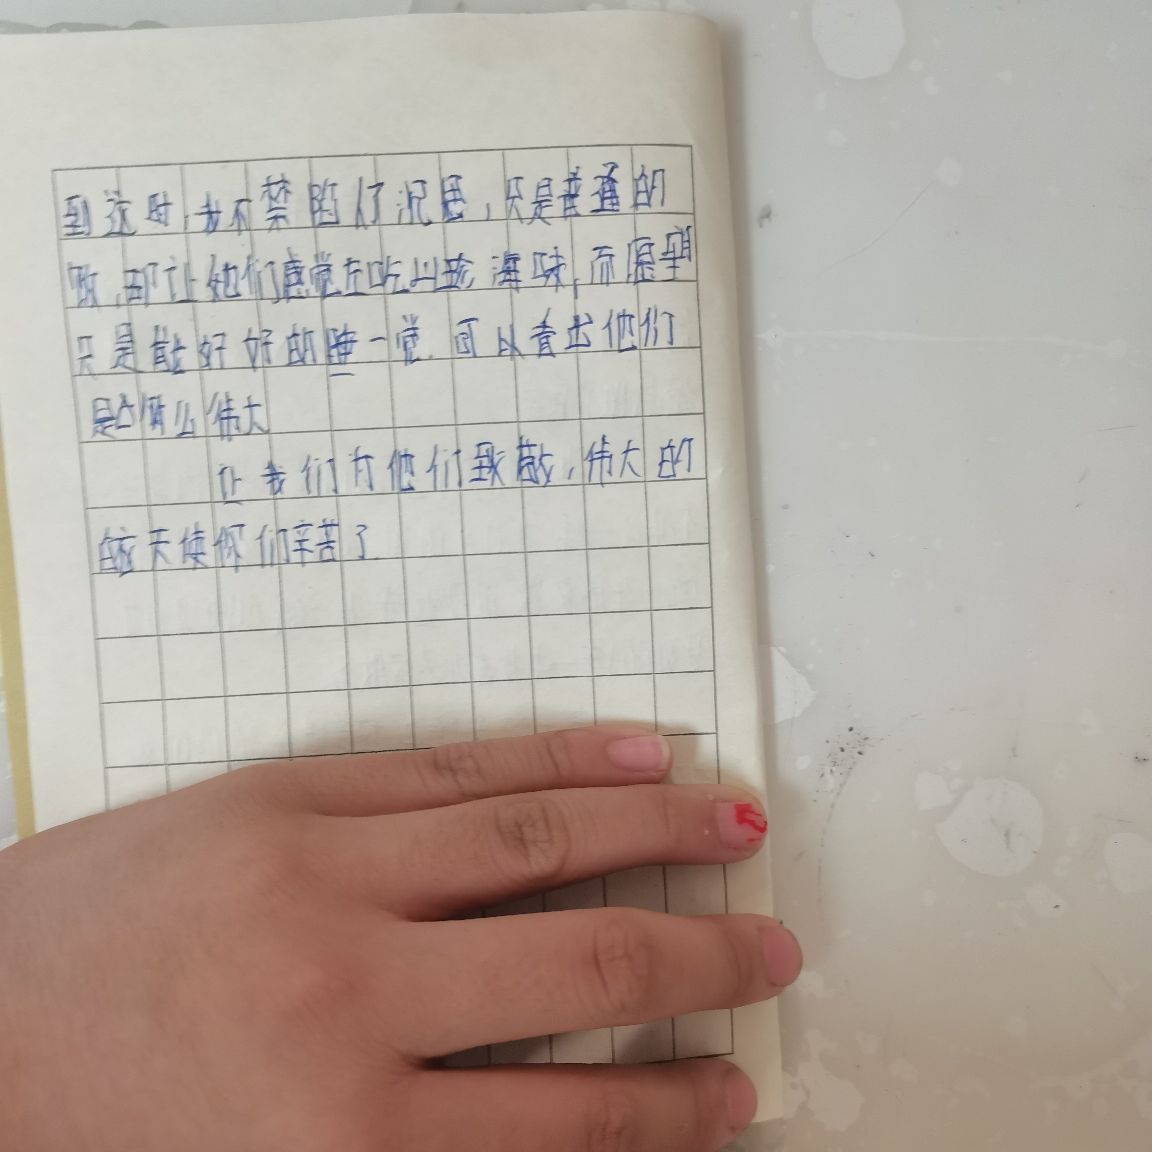 到这时,我不禁陷入了沉思,只是普通的
饭,却让他们感觉在吃山珍海味,而愿望
只是能好好的睡一觉.可以看出他们
是多么伟大
让我们为他们致敬,伟大的
白衣天使你们辛苦了